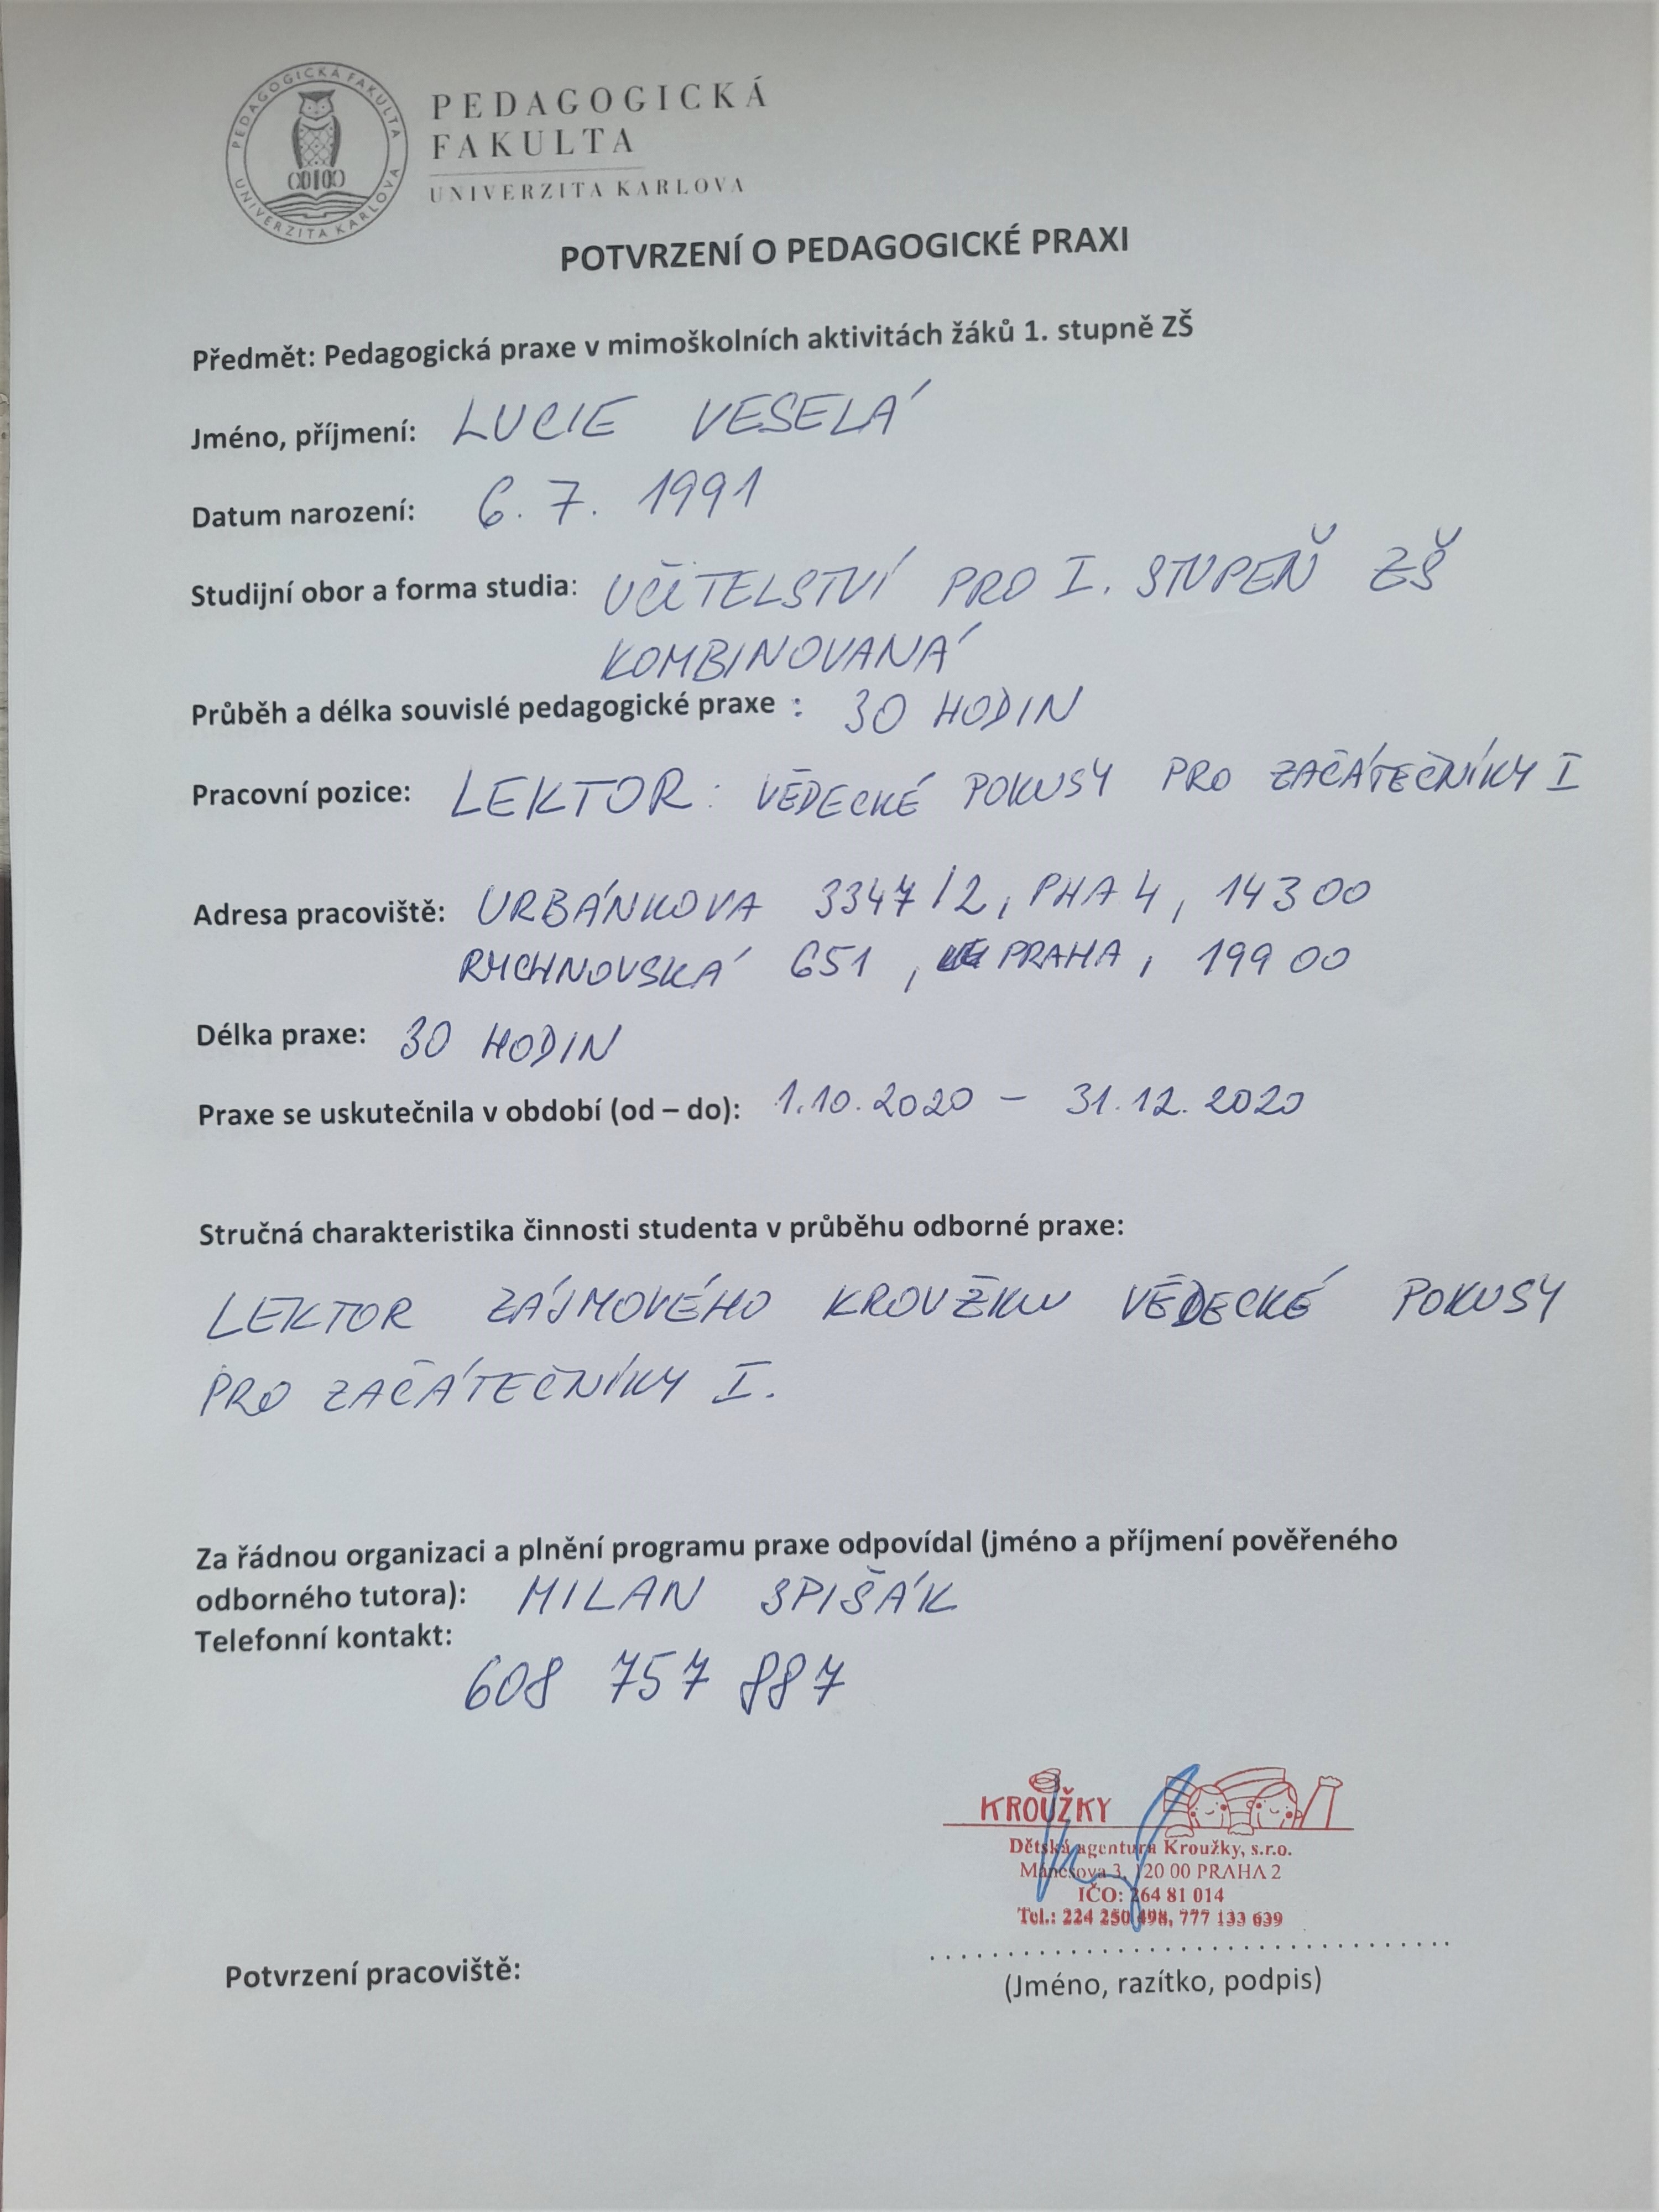 PEDAGOGICKÁ FAKULTA
UNIVERZITA KARLOVA
PEDAGOGICKÁ
FAKULTA
UNIVERZITA KARLOVA
POTVRZENÍ O PEDAGOGICKÉ PRAXI
Předmět: Pedagogická praxe v mimoškolních aktivitách žáků 1. stupně ZŠ
Jméno, příjmení: LUCIE VESELÁ
Datum narození: 6. 7. 1991
Studijní obor a forma studia: UČITELSTVÍ PRO I. STUPEŇ ZŠ
KOMBINOVANÁ
Průběh a délka souvislé pedagogické praxe : 30 HODIN
Pracovní pozice: LEKTOR: VĚDECKÉ POKUSY PRO ZAČÁTEČNÍKY I
Adresa pracoviště: URBÁNKOVA 3347/2, PHA 4, 143 00
RYCHNOVSKÁ 651, PRAHA, 199 00
Délka praxe: 30 HODIN
Praxe se uskutečnila v období (od – do): 1.10.2020 – 31.12.2020
Stručná charakteristika činnosti studenta v průběhu odborné praxe:
LEKTOR ZÁJMOVÉHO KROUŽKU VĚDECKÉ POKUSY
PRO ZAČÁTEČNÍKY I.
Za řádnou organizaci a plnění programu praxe odpovídal (jméno a příjmení pověřeného
odborného tutora): MILAN SPIŠÁK
Telefonní kontakt:
608 757 887
KROUŽKY
Dětská agentura Kroužky, s.r.o.
Mánesova 3, 120 00 PRAHA 2
IČO: 264 81 014
Tel.: 224 250 498, 777 133 639
Potvrzení pracoviště:
(Jméno, razítko, podpis)